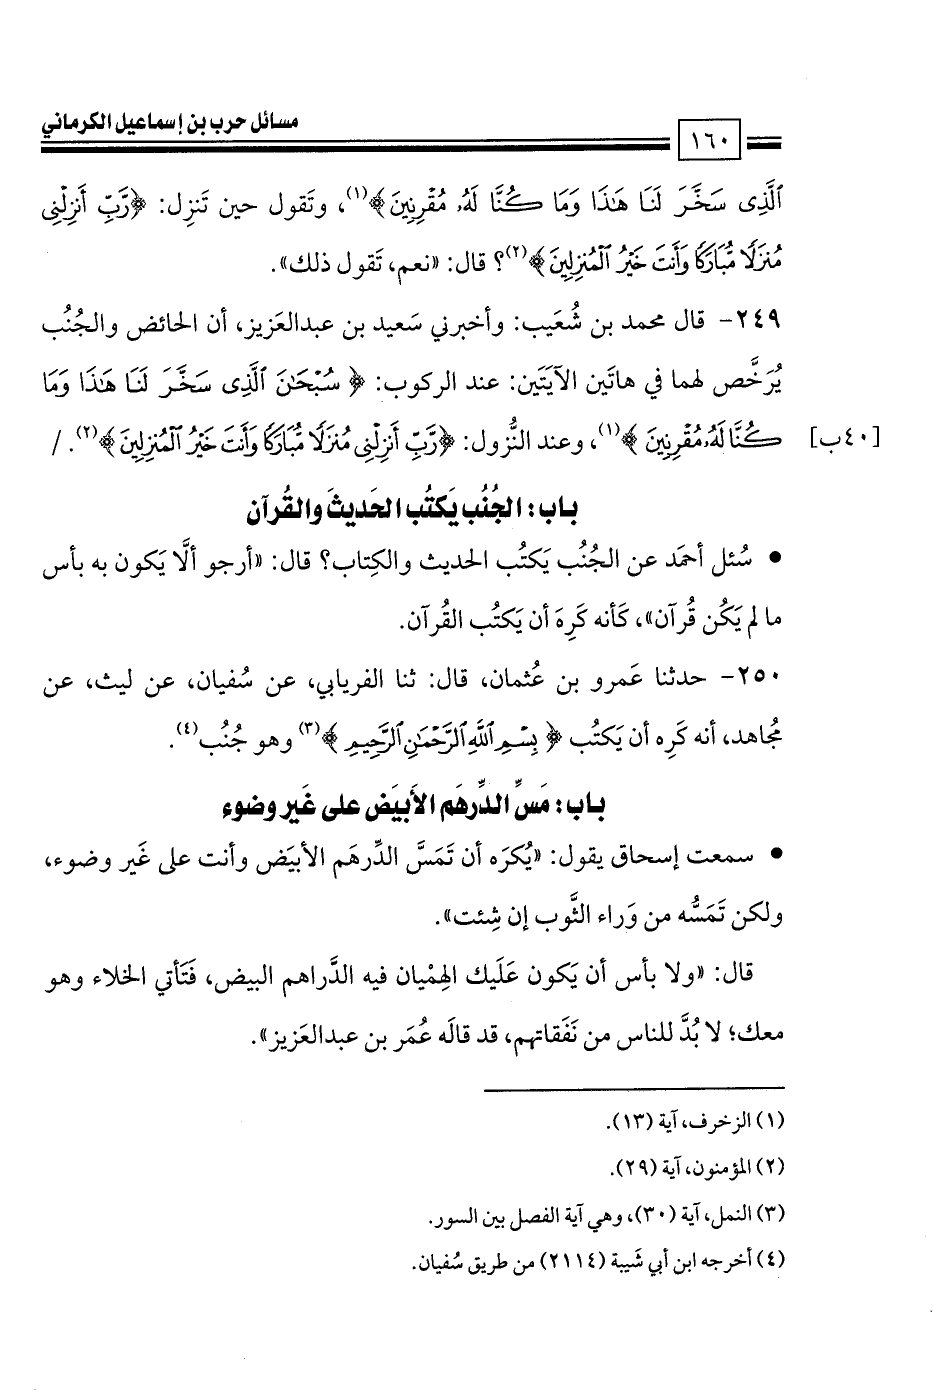 مسائل حرب بن إسماعيل الكرماني
١٦٠
ٱلَّذِى سَخَّرَ لَنَا هَٰذَا وَمَا كُنَّا لَهُۥ مُقْرِنِينَ﴾(١)، وتَقول حين تَنزِل: ﴿رَّبِّ أَنزِلْنِى
مُنزَلًا مُّبَارَكًا وَأَنتَ خَيْرُ ٱلْمُنزِلِينَ﴾(٢)؟ قال: «نعم، تَقول ذلك».
٢٤٩- قال محمد بن شُعَيب: وأخبرني سَعيد بن عبدالعَزيز، أن الحائض والجُنُب
يُرَخَّص لهما في هاتَين الآيَتَين: عند الركوب: ﴿سُبْحَٰنَ ٱلَّذِى سَخَّرَ لَنَا هَٰذَا وَمَا
كُنَّا لَهُۥ مُقْرِنِينَ﴾(١)، وعند النُّزول: ﴿رَّبِّ أَنزِلْنِى مُنزَلًا مُّبَارَكًا وَأَنتَ خَيْرُ ٱلْمُنزِلِينَ﴾(٢). /
[٤٠ب]
باب: الجُنُب يَكتُب الحَديثَ والقُرآن
• سُئل أحمَد عن الجُنُب يَكتُب الحديث والكِتاب؟ قال: «أرجو ألَّا يَكون به بأس
ما لم يَكُن قُرآن»، كَأنه كَرِهَ أن يَكتُب القُرآن.
٢٥٠- حدثنا عَمرو بن عُثمان، قال: ثنا الفريابي، عن سُفيان، عن ليث، عن
مُجاهد، أنه كَرِه أن يَكتُب ﴿بِسْمِ ٱللَّهِ ٱلرَّحْمَٰنِ ٱلرَّحِيمِ﴾(٣) وهو جُنُب(٤).
باب: مَسِّ الدِّرهَم الأبيَض على غَير وضوء
• سمعت إسحاق يقول: «يُكرَه أن تَمَسَّ الدِّرهَم الأبيَض وأنت على غَير وضوء،
ولكن تَمَسُّه من وَراء الثَّوب إن شِئت».
قال: «ولا بأس أن يَكون عَلَيك الهِمْيان فيه الدَّراهم البيض، فَتَأتي الخلاء وهو
معك؛ لا بُدَّ للناس من نَفَقاتهم، قد قالَه عُمَر بن عبدالعَزيز».
(١) الزخرف، آية (١٣).
(٢) المؤمنون، آية (٢٩).
(٣) النمل، آية (٣٠)، وهي آية الفصل بين السور.
(٤) أخرجه ابن أبي شَيبة (٢١١٤) من طريق سُفيان.